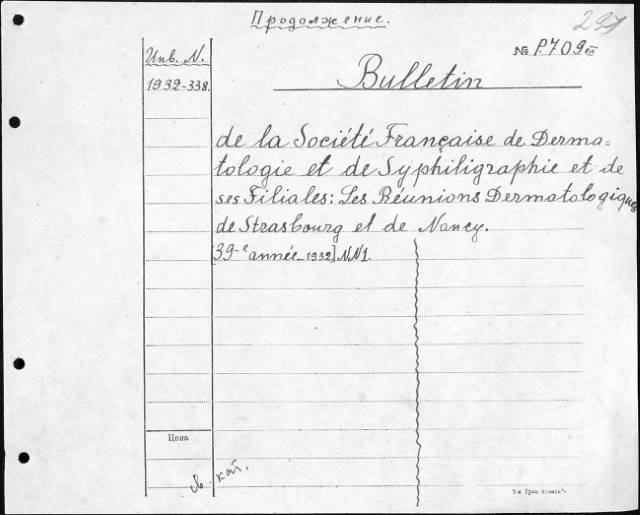 Продолжение.
297
Инв. N.
№ P.709 III
1932-338.
Bulletin
de la Société Française de Derma=
tologie et de Syphiligraphie et de
ses Filiales: Les Réunions Dermatologiques
de Strasbourg et de Nancy.
[39-e année-1932] NN1.
Цена
кат.